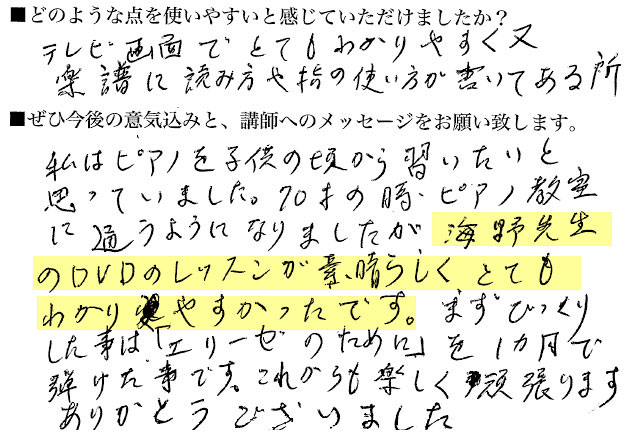 ■どのような点を使いやすいと感じていただけましたか？
テレビ画面でとてもわかりやすく又
楽譜に読み方や指の使い方が書いてある所
■ぜひ今後の意気込みと、講師へのメッセージをお願い致します。
私はピアノを子供の頃から習いたいと
思っていました。70才の時、ピアノ教室
に通うようになりましたが海野先生
のDVDのレッスンが素晴らしくとても
わかりやすかったです。まずびっくり
した事は「エリーゼのために」を1カ月で
弾けた事です。これからも楽しく頑張ります
ありがとうございました